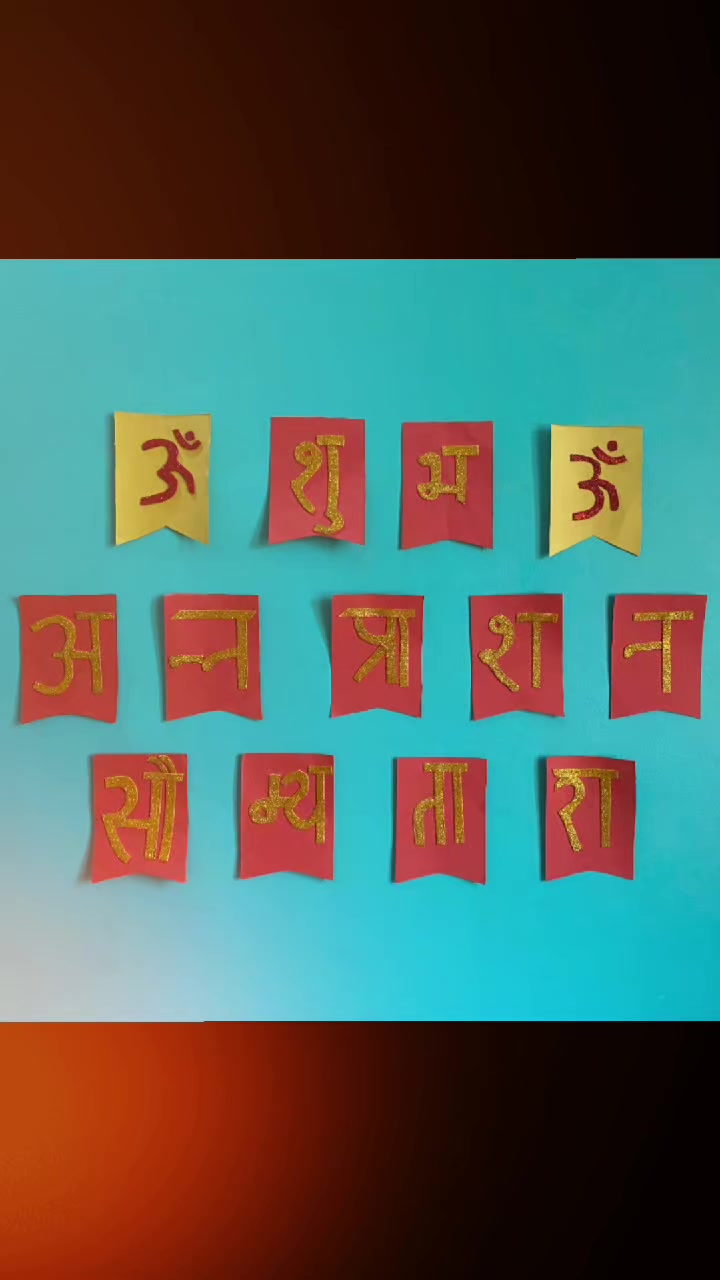 ॐ शुभ ॐ
अन्नप्राशन
सौम्यतारा